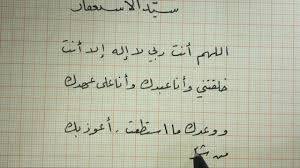 سيد الاستغفار
اللهم أنت ربي لا إله إلا أنت
خلقتني وأنا عبدك وأنا على عهدك
ووعدك ما استطعت . أعوذ بك
من شر